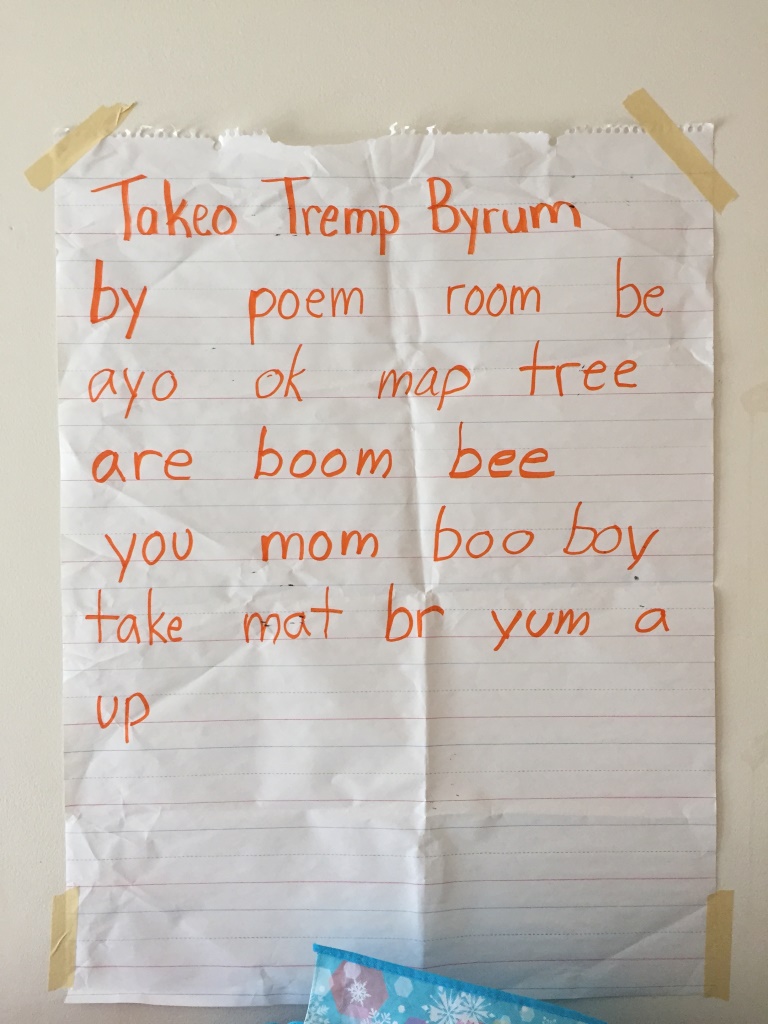 Takeo Tremp Byrum
by poem room be
ayo ok map tree
are boom bee
you mom boo boy
take mat br yum a
up